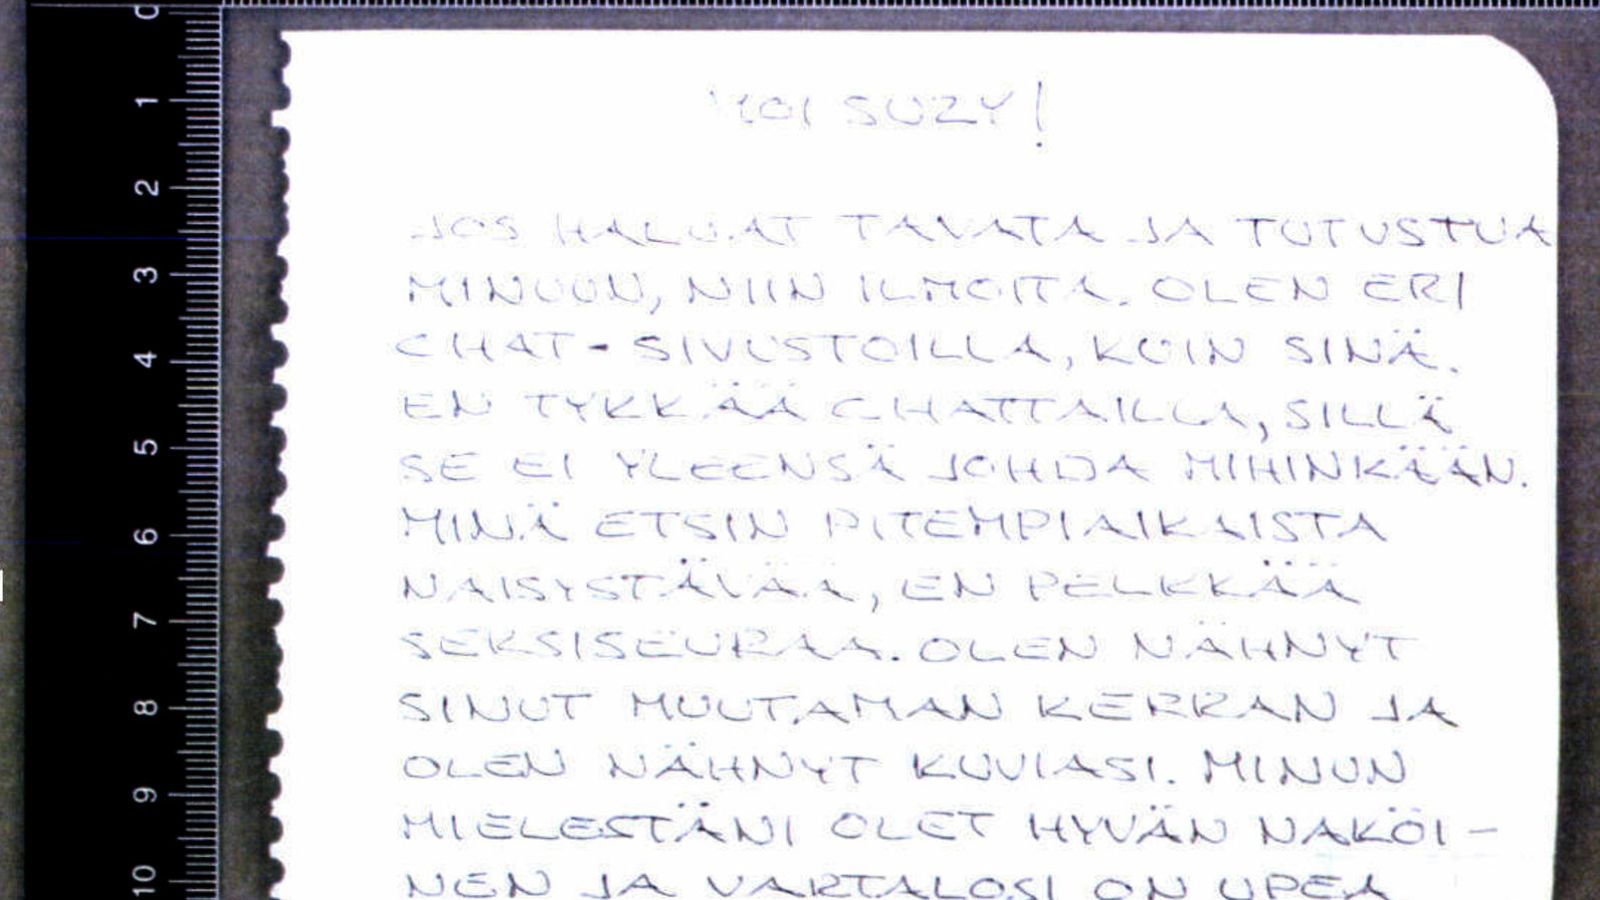 0
1
2
3
4
5
6
7
8
9
10
MOI SUZY!
JOS HALUAT TAVATA JA TUTUSTUA
MINUUN, NIIN ILMOITA. OLEN ERI
CHAT-SIVUSTOILLA, KUIN SINÄ.
EN TYKKÄÄ CHATTAILLA, SILLÄ
SE EI YLEENSÄ JOHDA MIHINKÄÄN.
MINÄ ETSIN PITEMPIAIKAISTA
NAISYSTÄVÄÄ, EN PELKKÄÄ
SEKSISEURAA. OLEN NÄHNYT
SINUT MUUTAMAN KERRAN JA
OLEN NÄHNYT KUVIASI. MINUN
MIELESTÄNI OLET HYVÄN NÄKÖI-
NEN JA VARTALOSI ON UPEA